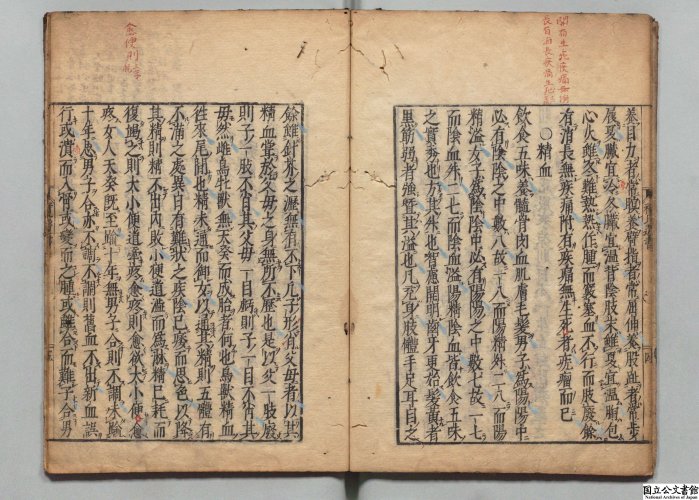 養目力者常瞑養臂指者常屈伸養股趾者常步
履夏臟宜冷冬臟宜温背陰肢末雖夏宜温胸包
心火雖冬難熱作腫而裹塞血不行而肢廢餘
有消長無疾痛附有疾痛無生死者疣瘤而已
○精血
飲食五味養髓骨肉血肌膚毛髮男子為陽陽中
必有陰陰之中數八故一八而陽精升二八而陽
精溢女子為陰陰中必有陽陽之中數七故一七
而陰血升二七而陰血溢陽精陰血皆飲食五味
之實秀也方其升也智慮開明齒牙更始髮黃者
黑筋弱者強暨其溢也凡充身肢體手足耳目之
餘雖針芥之瀝無有不下凡子形肖父母者以其
精血嘗於父母之身無所不歷也是以父一肢廢
則子一肢不肖其父母一目虧則子一目不肖其
母然雌鳥牝獸無天癸而成胎者何也鳥獸精血
徃來尾閭也精未通而御女以通其精則五體有
不滿之處異日有難狀之疾陰已痿而思色以降
其精則精不出內敗小便道澁而為淋精已耗而
復竭之則大小便道牽疼愈疼則愈欲大小便愈
疼女人天癸既至踰十年無男子合則不調未踰
十年思男子合亦不調不調則舊血不出新血誤
行或潰而入骨或變而之腫或雖合而難子合男
国立公文書館
National Archives of Japan